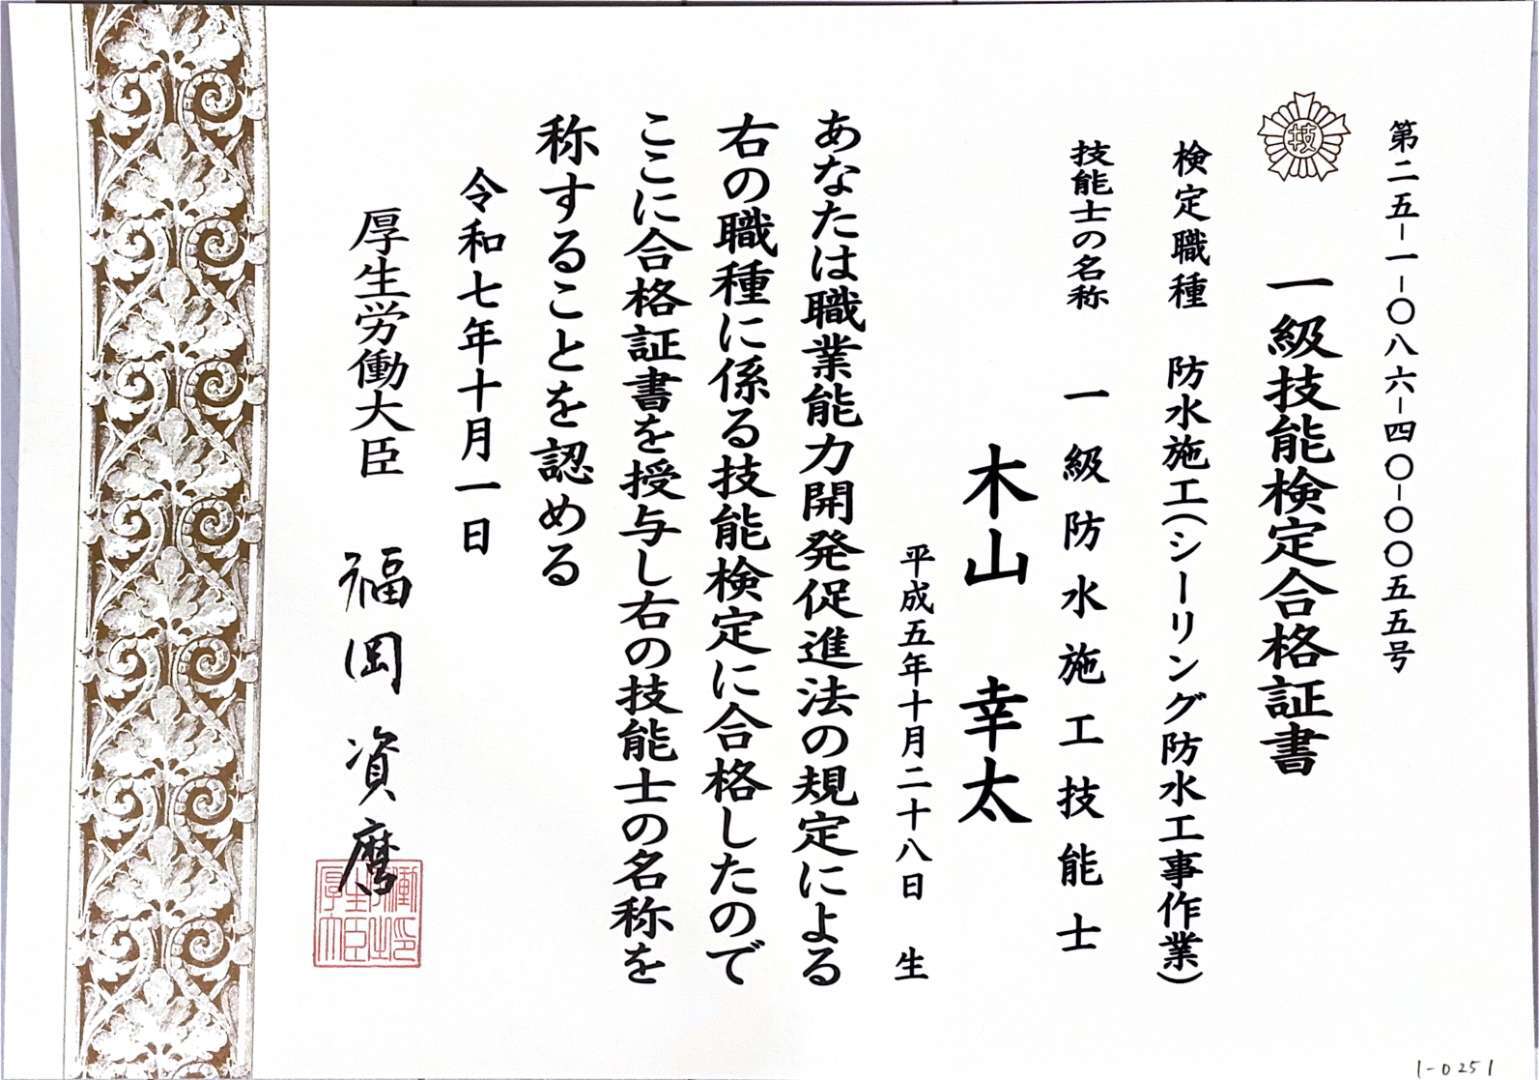 第二五-一-〇八六-四〇-〇〇五五号
技
一級技能検定合格証書
検定職種 防水施工(シーリング防水工事作業)
技能士の名称 一級防水施工技能士
木山 幸太
平成五年十月二十八日 生
あなたは職業能力開発促進法の規定による
右の職種に係る技能検定に合格したので
ここに合格証書を授与し右の技能士の名称を
称することを認める
令和七年十月一日
厚生労働大臣 福岡資麿
1-0251